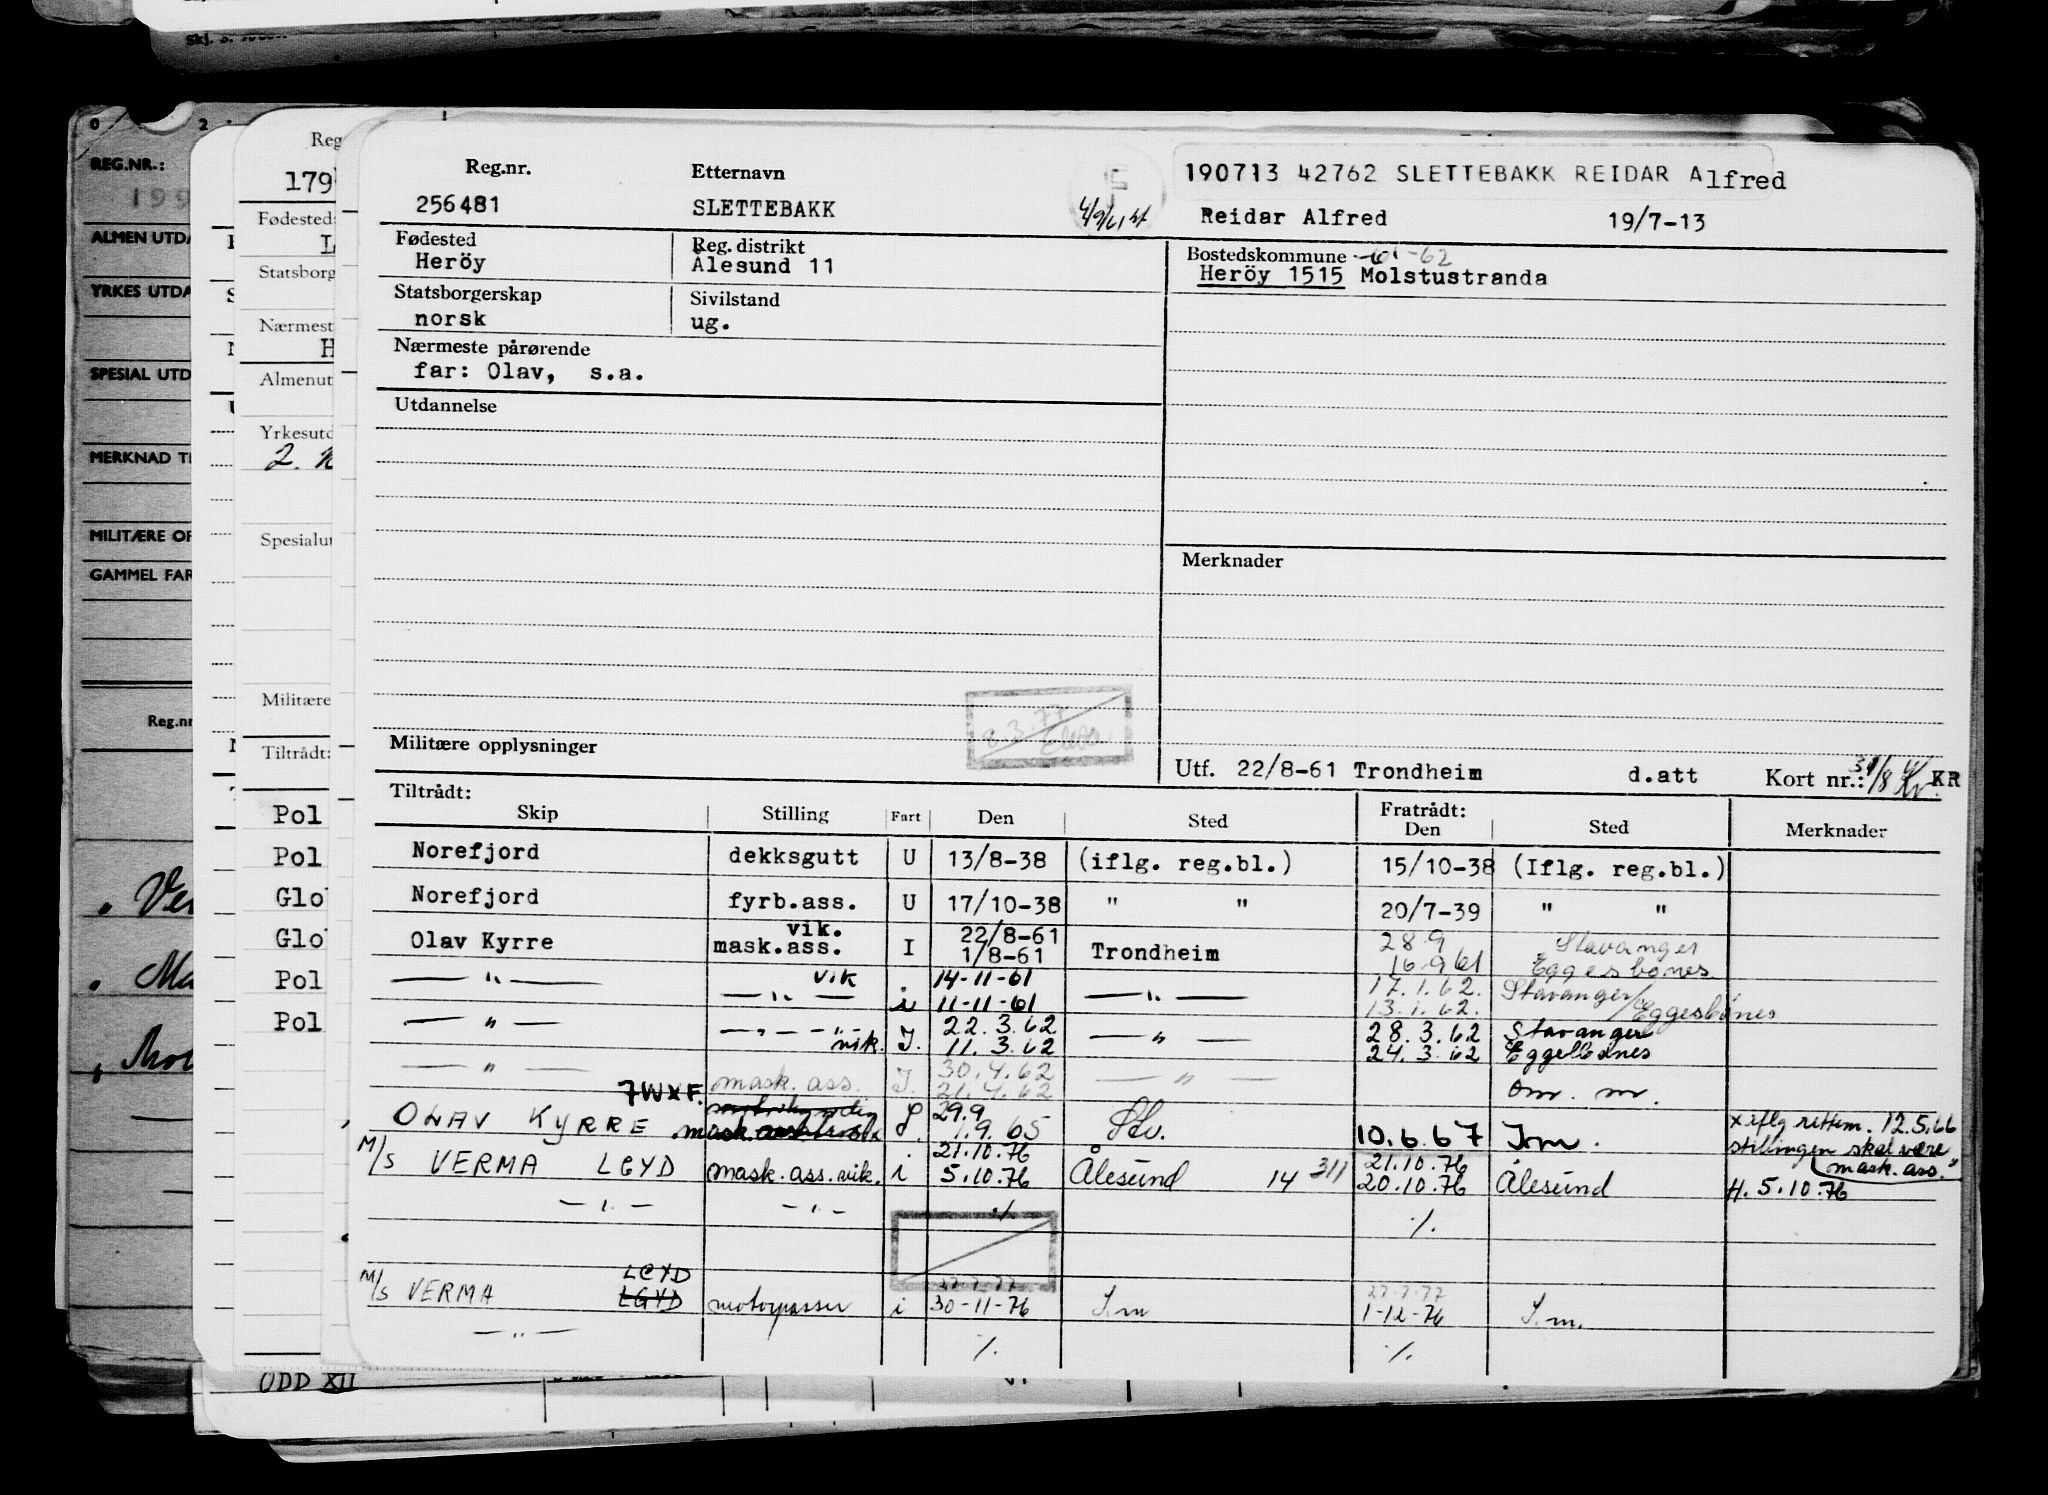 Reg.nr.
256481
Etternavn
SLETTEBAKK
190713 42762 SLETTEBAKK REIDAR Alfred
Reidar Alfred 19/7-13
Fødested
Heröy
Reg. distrikt
Ålesund 11
Bostedskommune
Heröy 1515 Molstustranda
Statsborgerskap
norsk
Sivilstand
ug.
Nærmeste pårørende
far: Olav, s.a.
Utdannelse
Merknader
Militære opplysninger
8.3.77
Utf. 22/8-61 Trondheim d.att Kort nr.: KR
Tiltrådt: Fratrådt:
Skip Stilling Fart Den Sted Den Sted Merknader
Norefjord dekksgutt U 13/8-38 (iflg. reg.bl.) 15/10-38 (Iflg. reg.bl.)
Norefjord fyrb.ass. U 17/10-38 " " 20/7-39 " "
vik. 22/8-61 28 9 Stavanger
Olav Kyrre mask.ass. I 1/8-61 Trondheim 16.9 61 Eggesbønes
— " — vik 14-11-61 17.1.62. Stavanger/Eggesbønes
— " — i 11-11-61 — " — 13.1.62.
— " — — " — 22.3.62 28.3.62 Stavanger
vik. I. 11.3.62 — " — 24.3.62 Eggesbönes
— " — mask. ass. I. 30.4.62 — " — om. m.
21.4.62
7WXF. 29.9
OLAV KYRRE 1.9.65 10.6.67 I.m. x iflg rettem. 12.5.66
stillingen skal være
"mask. ass."
21.10.76 21.10.76
M/s VERMA LGYD mask.ass.vik. i 5.10.76 Ålesund 14 311 20.10.76 Ålesund H. 5.10.76
— " — — " — % %
LCYD
27.7.77 27.7.77
M/s VERMA LGYD motorpasser i 30-11-76 I.m 1-12-76 I.m.
— " — % %
REG.NR.:
ALMEN UTDA
YRKES UTDA
SPESIAL UTD
MERKNAD TI
MILITÆRE OP
GAMMEL FAR
Reg.nr
Reg
179
Fødested:
Statsborg
Nærmest
H
Almenut
Yrkesutd
2.
Spesialut
Militære
Tiltrådt:
Pol
Pol
Glo
Glo
Pol
Pol
ODD XII